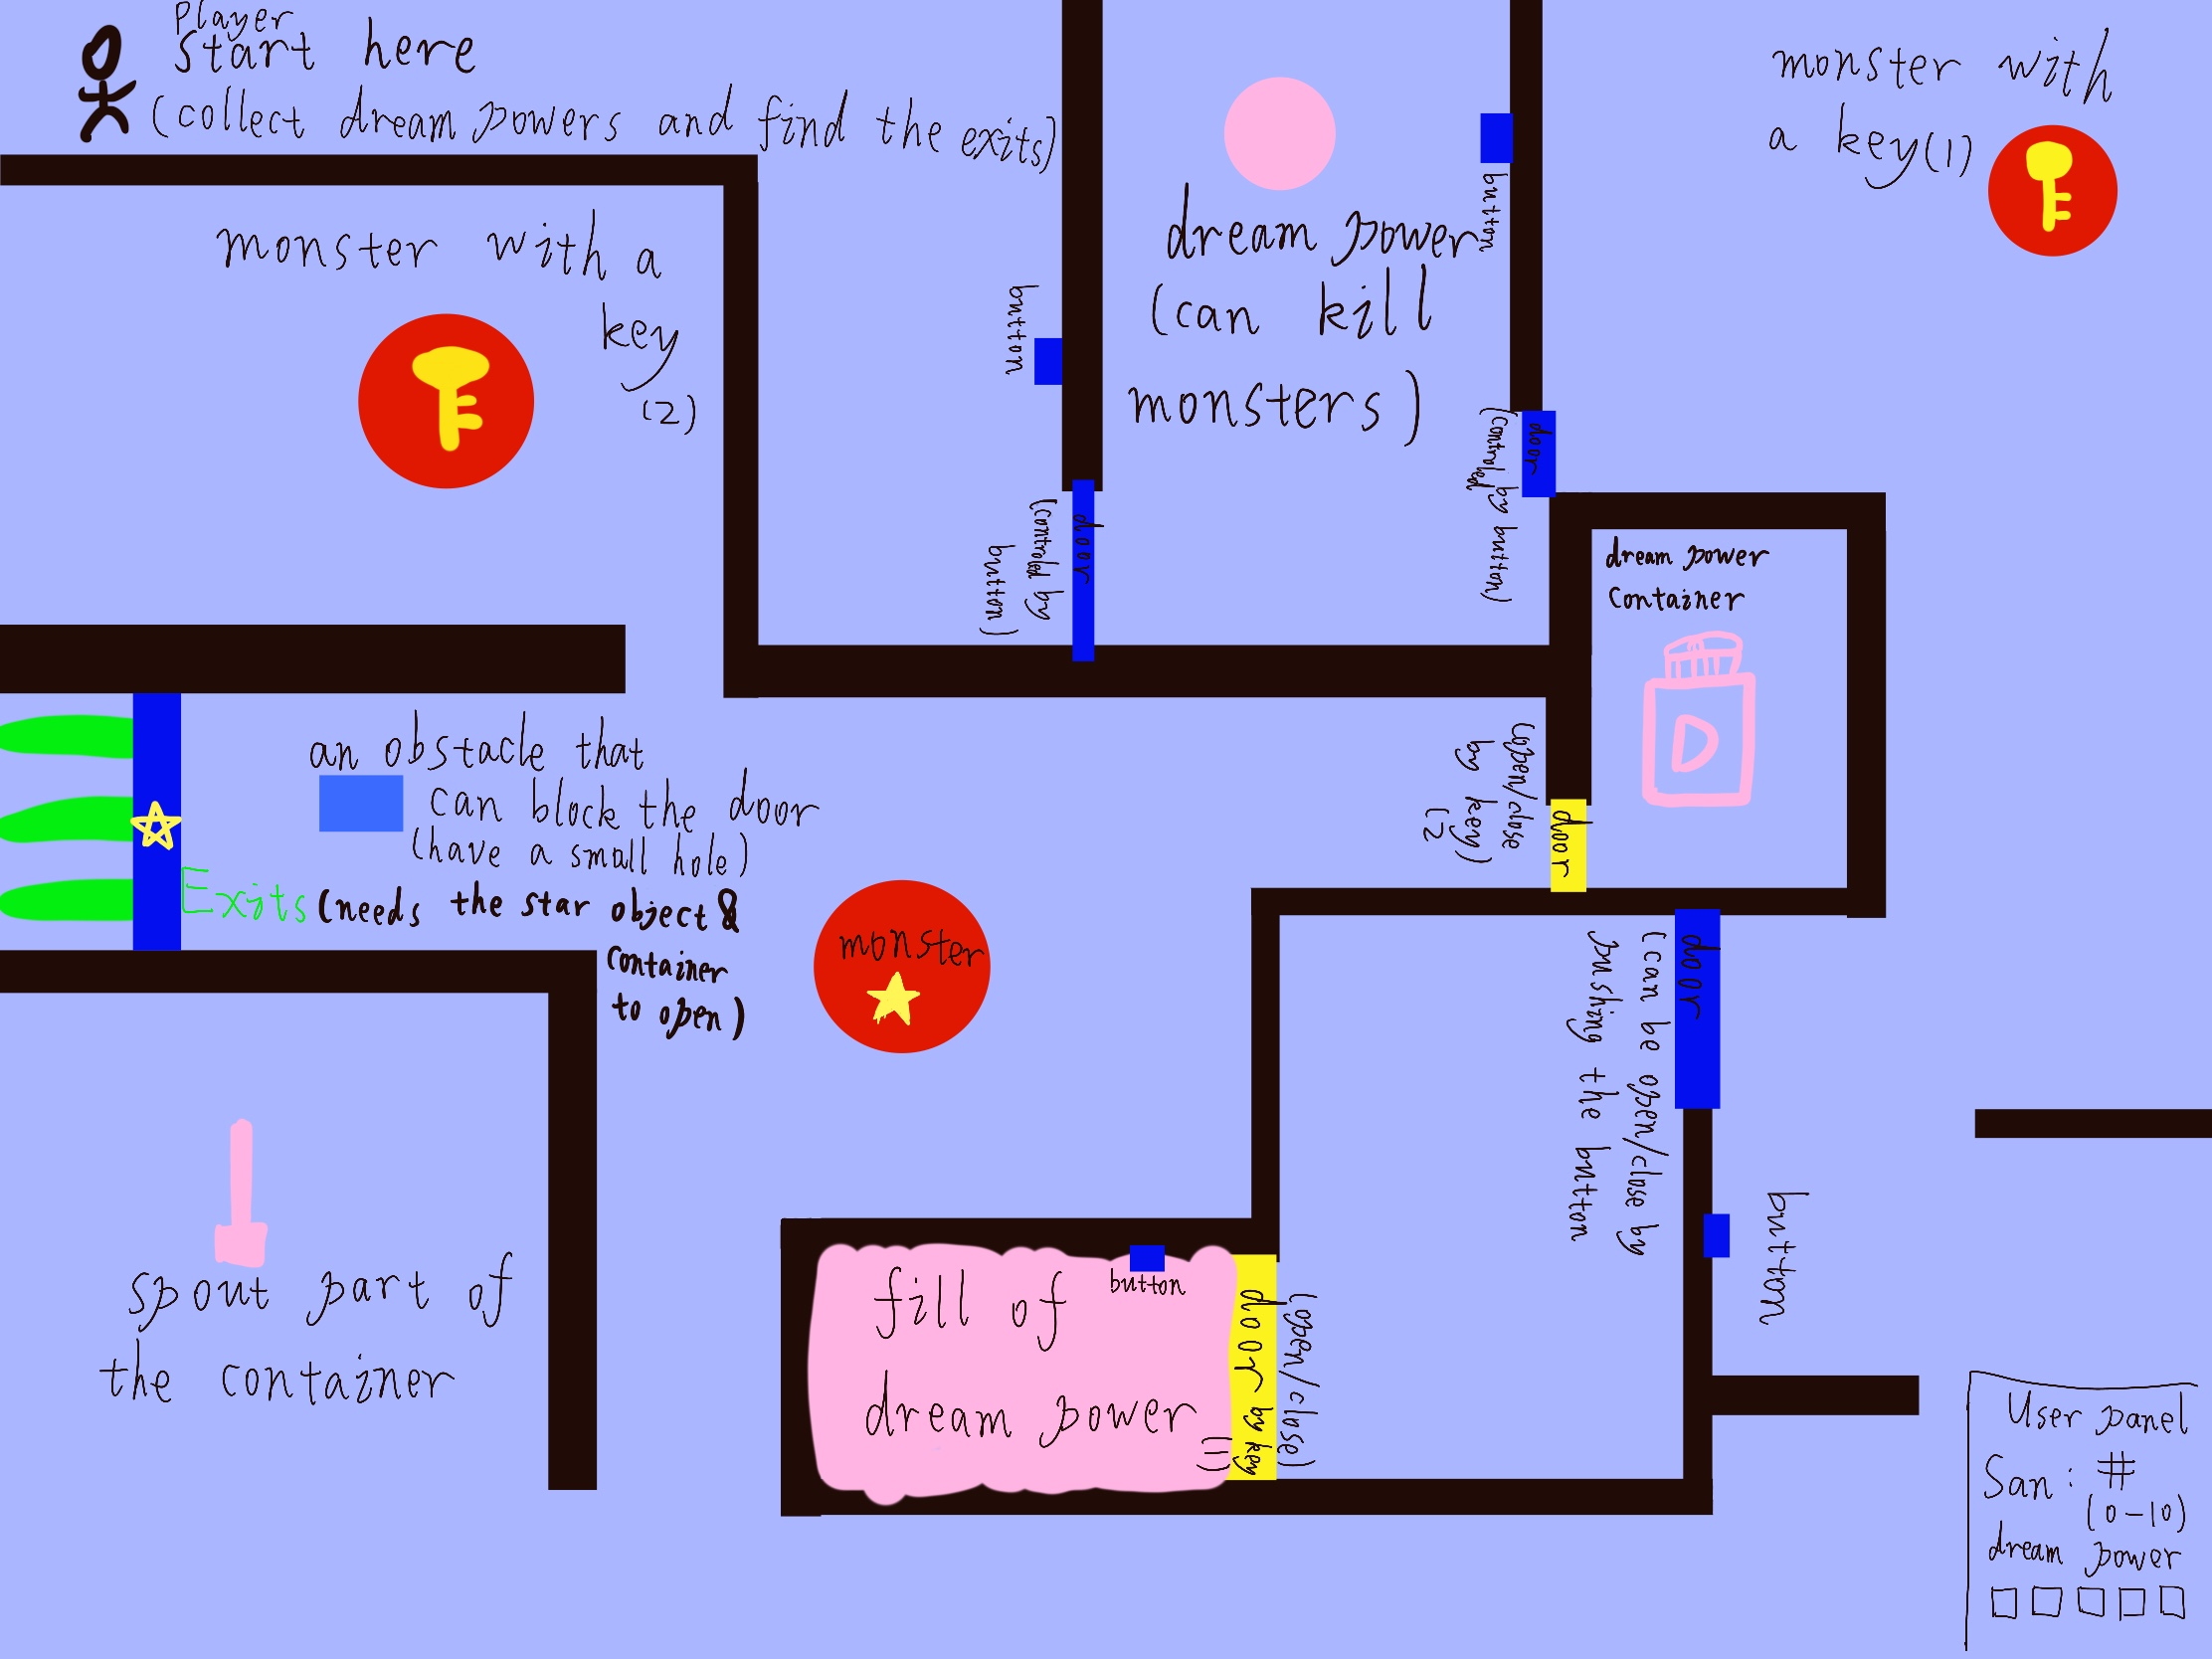 Player
start here
(collect dream powers and find the exits)
monster with a
key
(2)
button
door
(controled by
button)
dream power
(can kill
monsters)
button
door
(controled by button)
monster with
a key(1)
dream power
container
D
door
(open/close
by key)
(2
an obstacle that
can block the door
(have a small hole)
Exits (needs the star object &
container
to open)
monster
door
(can be open/close by
pushing the button
button
spout part of
the container
fill of
dream power
button
door by key
(1)
(open/close)
User panel
San: #
(0-10)
dream power